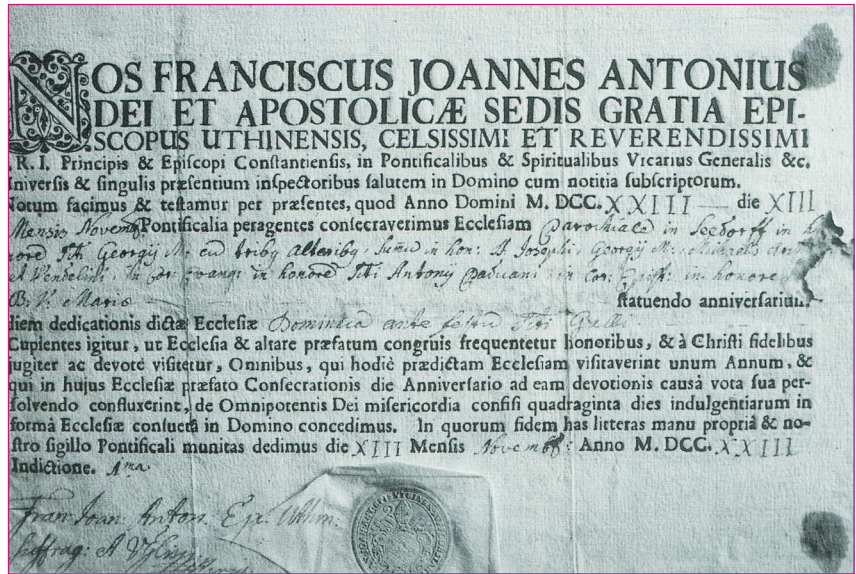 NOS FRANCISCUS JOANNES ANTONIUS
DEI ET APOSTOLICÆ SEDIS GRATIA EPI-
SCOPUS UTHINENSIS, CELSISSIMI ET REVERENDISSIMI
.R.I. Principis & Epiſcopi Conſtantienſis, in Pontificalibus & Spiritualibus Vicarius Generalis &c.
niverſis & ſingulis præſentium inſpectoribus ſalutem in Domino cum notitia ſubſcriptorum.
Notum facimus & teſtamur per præſentes, quod Anno Domini M. DCC. XXIII die XIII
Mensis Novemb Pontificalia peragentes conſecraverimus Eccleſiam Parochiale in Seedorff in
nore Sti Georgij M: cu tribq altaribq, in hon: S Josephi, Georgij M: Michaelis
Wendelini, in cor Evang: in honore Sti Antony Paduani in Cor: Epist: in honore
B. V. Mariæ ſtatuendo anniverſarium
diem dedicationis dictæ Eccleſiæ Dominica ante festu Sti Galli
Cupientes igitur, ut Eccleſia & altare præfatum congruis frequentetur honoribus, & à Chriſti fidelibus
jugiter ac devotè viſitetur, Omnibus, qui hodiè prædictam Eccleſiam viſitaverint unum Annum, &
qui in hujus Eccleſiæ præfato Conſecrationis die Anniverſario ad eam devotionis causâ vota ſua per-
ſolvendo confluxerint, de Omnipotentis Dei miſericordia confiſi quadraginta dies indulgentiarum in
formâ Eccleſiæ conſuetâ in Domino concedimus. In quorum fidem has litteras manu propriâ & no-
ſtro ſigillo Pontificali munitas dedimus die XIII Mensis Novemb: Anno M. DCC. XXIII
Indictione. 1ma
Fran: Joan: Anton. Ep: Uthin:
Suffrag: